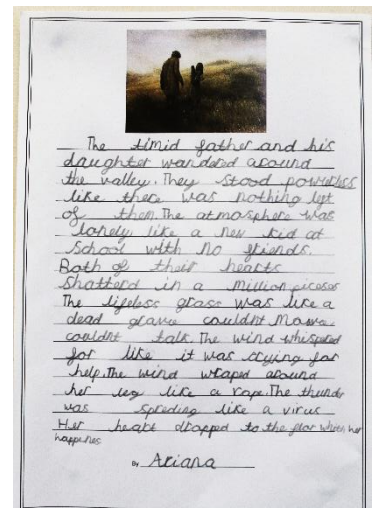 The timid father and his
daughter wandered around
the valley. They stood powerless
like there was nothing left
of them. The atmosphere was
lonely like a new kid at
school with no friends.
Both of their hearts
shatterd in a million
The lifeless grass was like a
dead grave couldnt
couldnt talk. The wind whispered
for like it was crying for
help. The wind wraped around
her leg like a rope. The thunder
was spreding like a virus
Her heart dropped to the flor when her
happines
By Ariana